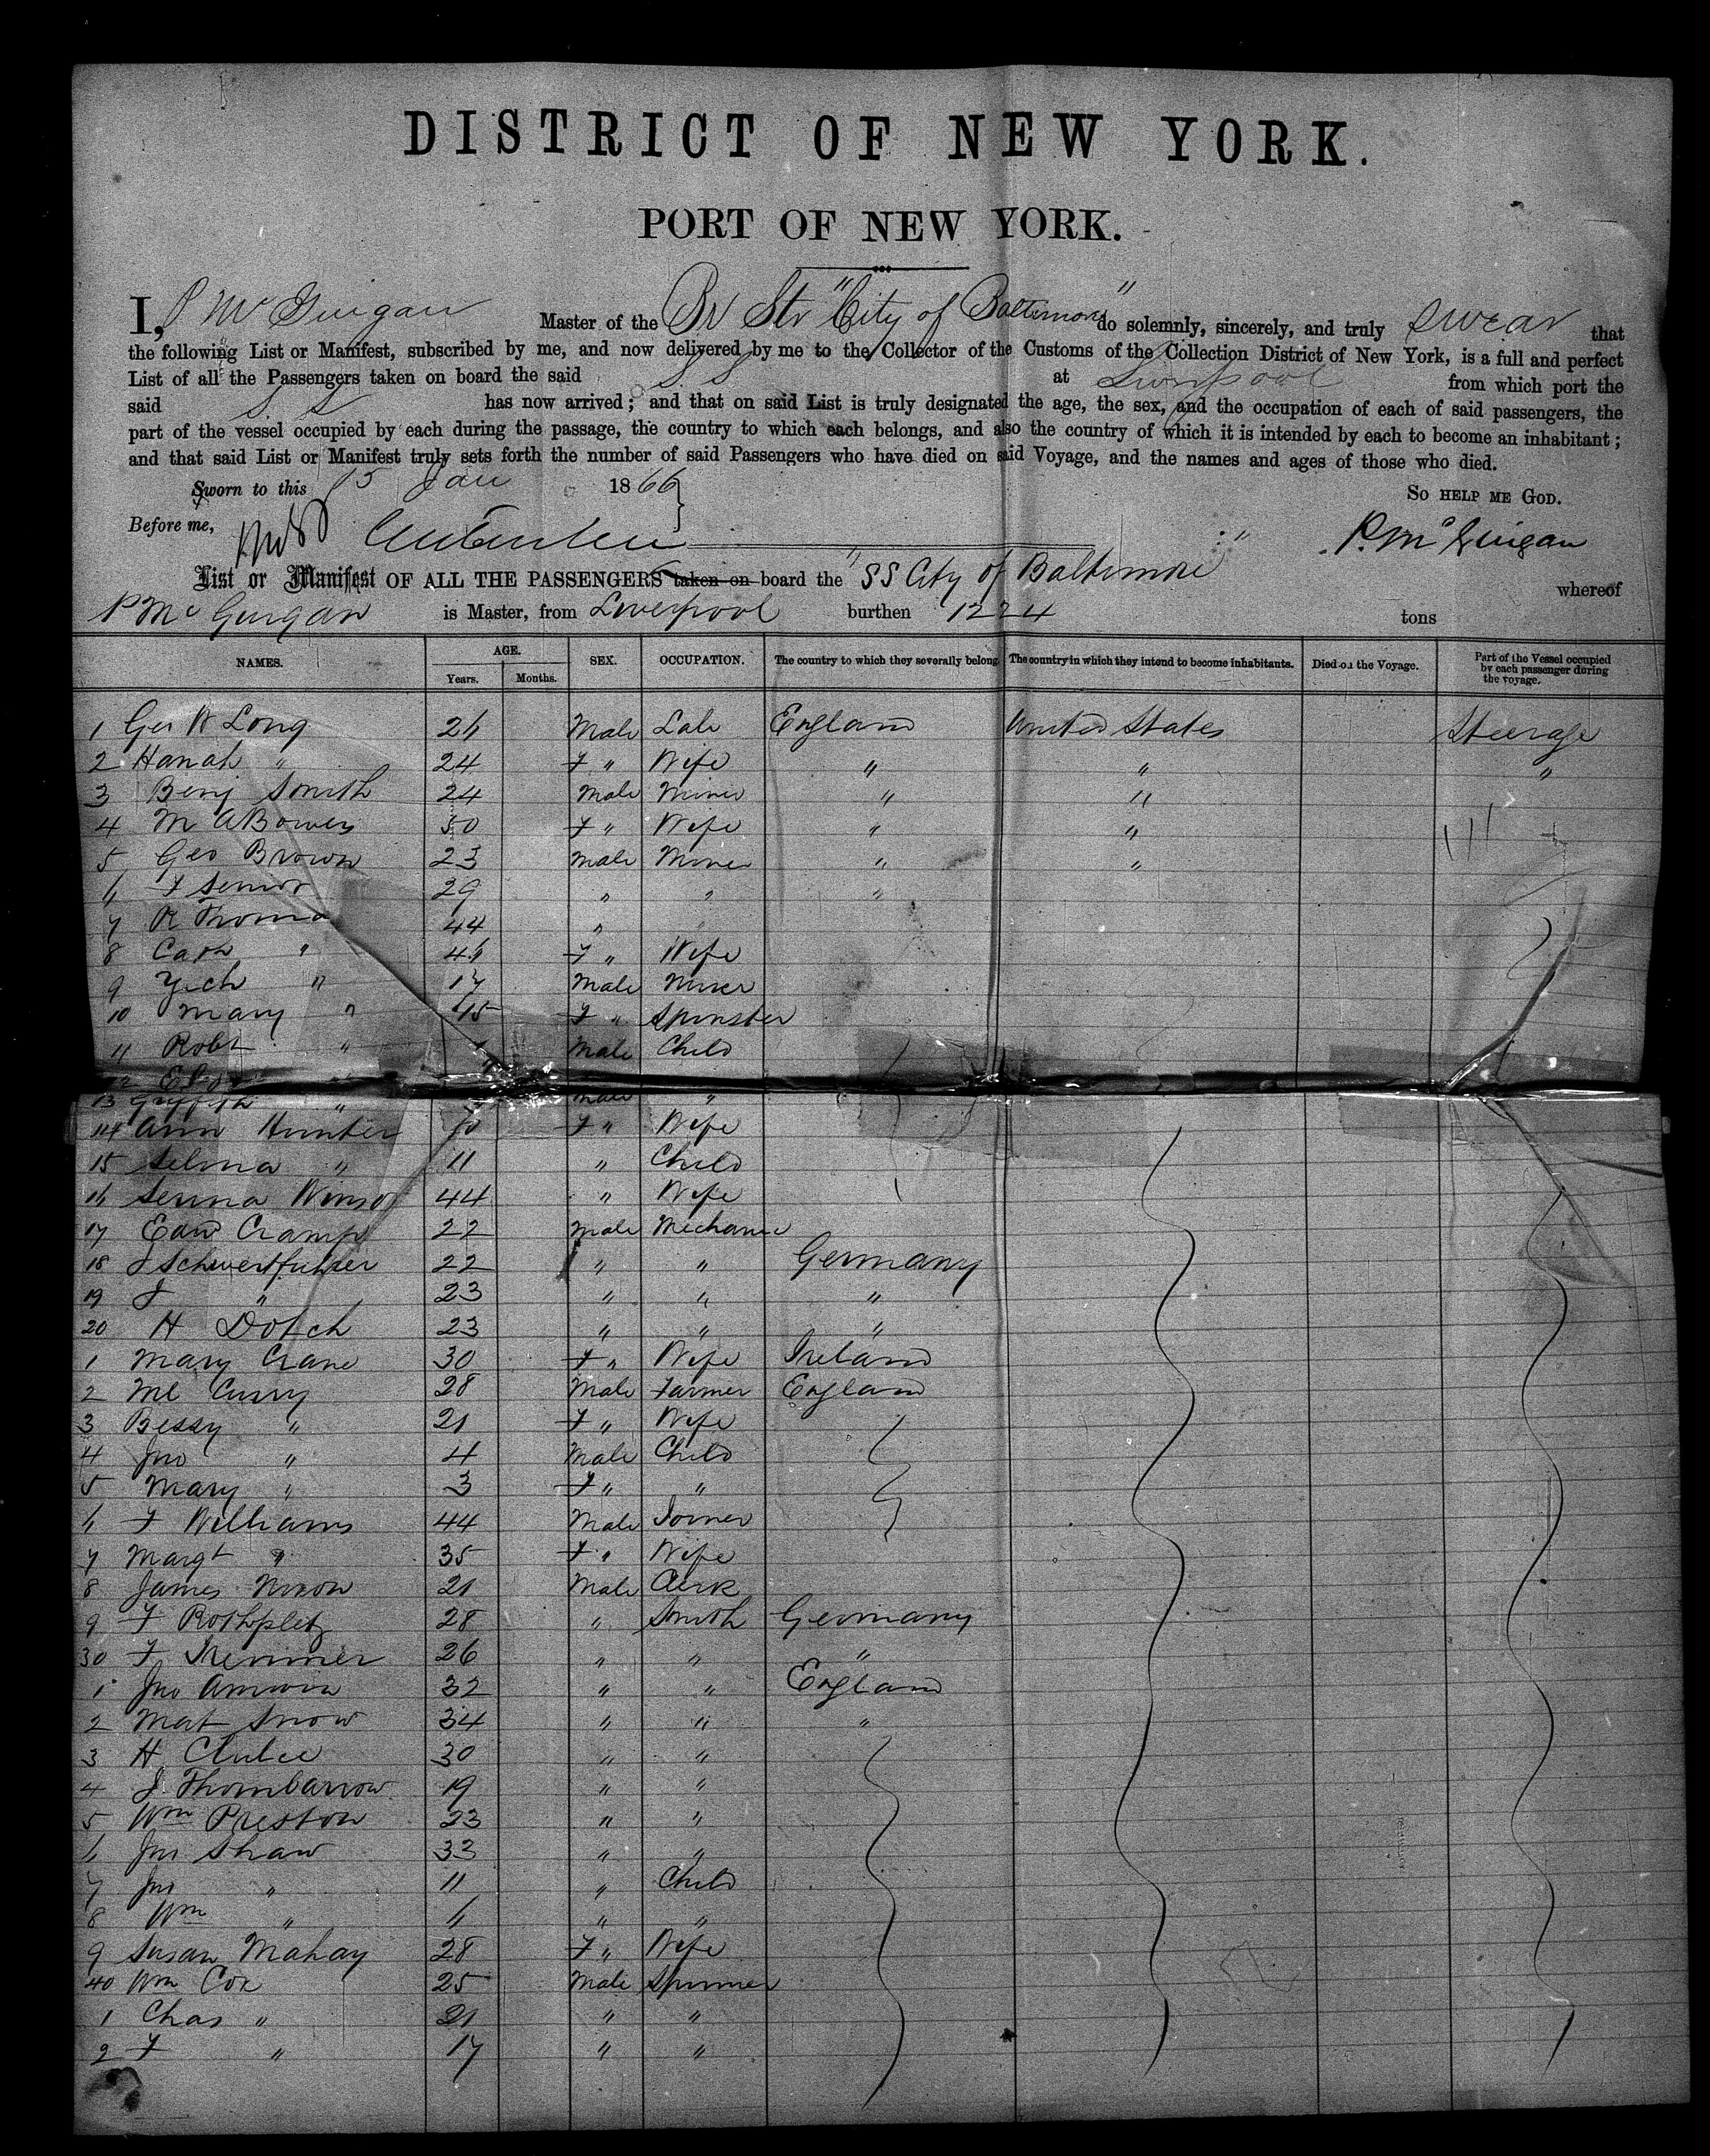 DISTRICT OF NEW YORK.
PORT OF NEW YORK.
I, P McGuigan Master of the Br Str "City of Baltimore" do solemnly, sincerely, and truly swear that
the following List or Manifest, subscribed by me, and now delivered by me to the Collector of the Customs of the Collection District of New York, is a full and perfect
List of all the Passengers taken on board the said S S at Liverpool from which port the
said S S has now arrived; and that on said List is truly designated the age, the sex, and the occupation of each of said passengers, the
part of the vessel occupied by each during the passage, the country to which each belongs, and also the country of which it is intended by each to become an inhabitant;
and that said List or Manifest truly sets forth the number of said Passengers who have died on said Voyage, and the names and ages of those who died.
Sworn to this 15 Jan 1866 So help me God.
Before me, P. McGuigan
List or Manifest OF ALL THE PASSENGERS taken on board the "SS City of Baltimore" whereof
P McGuigan is Master, from Liverpool burthen 1224 tons
NAMES. AGE. SEX. OCCUPATION. The country to which they severally belong. The country in which they intend to become inhabitants. Died on the Voyage. Part of the Vessel occupied by each passenger during the voyage.
Years. Months.
1 Geo W Long 26 Male Lab England United States Steerage
2 Hanah " 24 F " Wife " " "
3 Benj Smith 24 Male Miner " "
4 M A Bowers 30 F " Wife " "
5 Geo Brown 23 Male Miner " "
6 F Senior 29 " " "
7 R Thomas 44 "
8 Cath " 46 F " Wife
9 " 17 Male Miner
10 Mary " 15 F " Spinster
11 Robt " Male Child
12
13 Griffith " Male "
14 Ann Hunter F " Wife
15 Selina " 11 " Child
16 Senna Winsor 44 " Wife
17 Edwd Cramp 22 Male Mechanic
18 J Schwertfuhrer 22 " " Germany
19 J " 23 " " "
20 H Dotch 23 " " "
1 Mary Crane 30 F " Wife Ireland
2 Ml Curry 28 Male Farmer England
3 Bessy " 21 F " Wife
4 Jno " 4 Male Child
5 Mary " 3 F " "
6 F Williams 44 Male Joiner
7 Margt " 35 F " Wife
8 James Nixon 21 Male Clerk
9 F Rothpletz 28 " Smith Germany
30 F Kremmer 26 " " "
1 Jno 32 " " England
2 Mat Snow 34 " " "
3 H Clubee 30 " "
4 J. Thornbarrow 19 " "
5 Wm Preston 23 " "
6 Jno Shaw 33 " "
7 Jno " 11 " Child
8 Wm " 6 " "
9 Susan Mahay 28 F " Wife
40 Wm Cox 25 Male Spinner
1 Chas " 21 " "
2 F " 17 " "